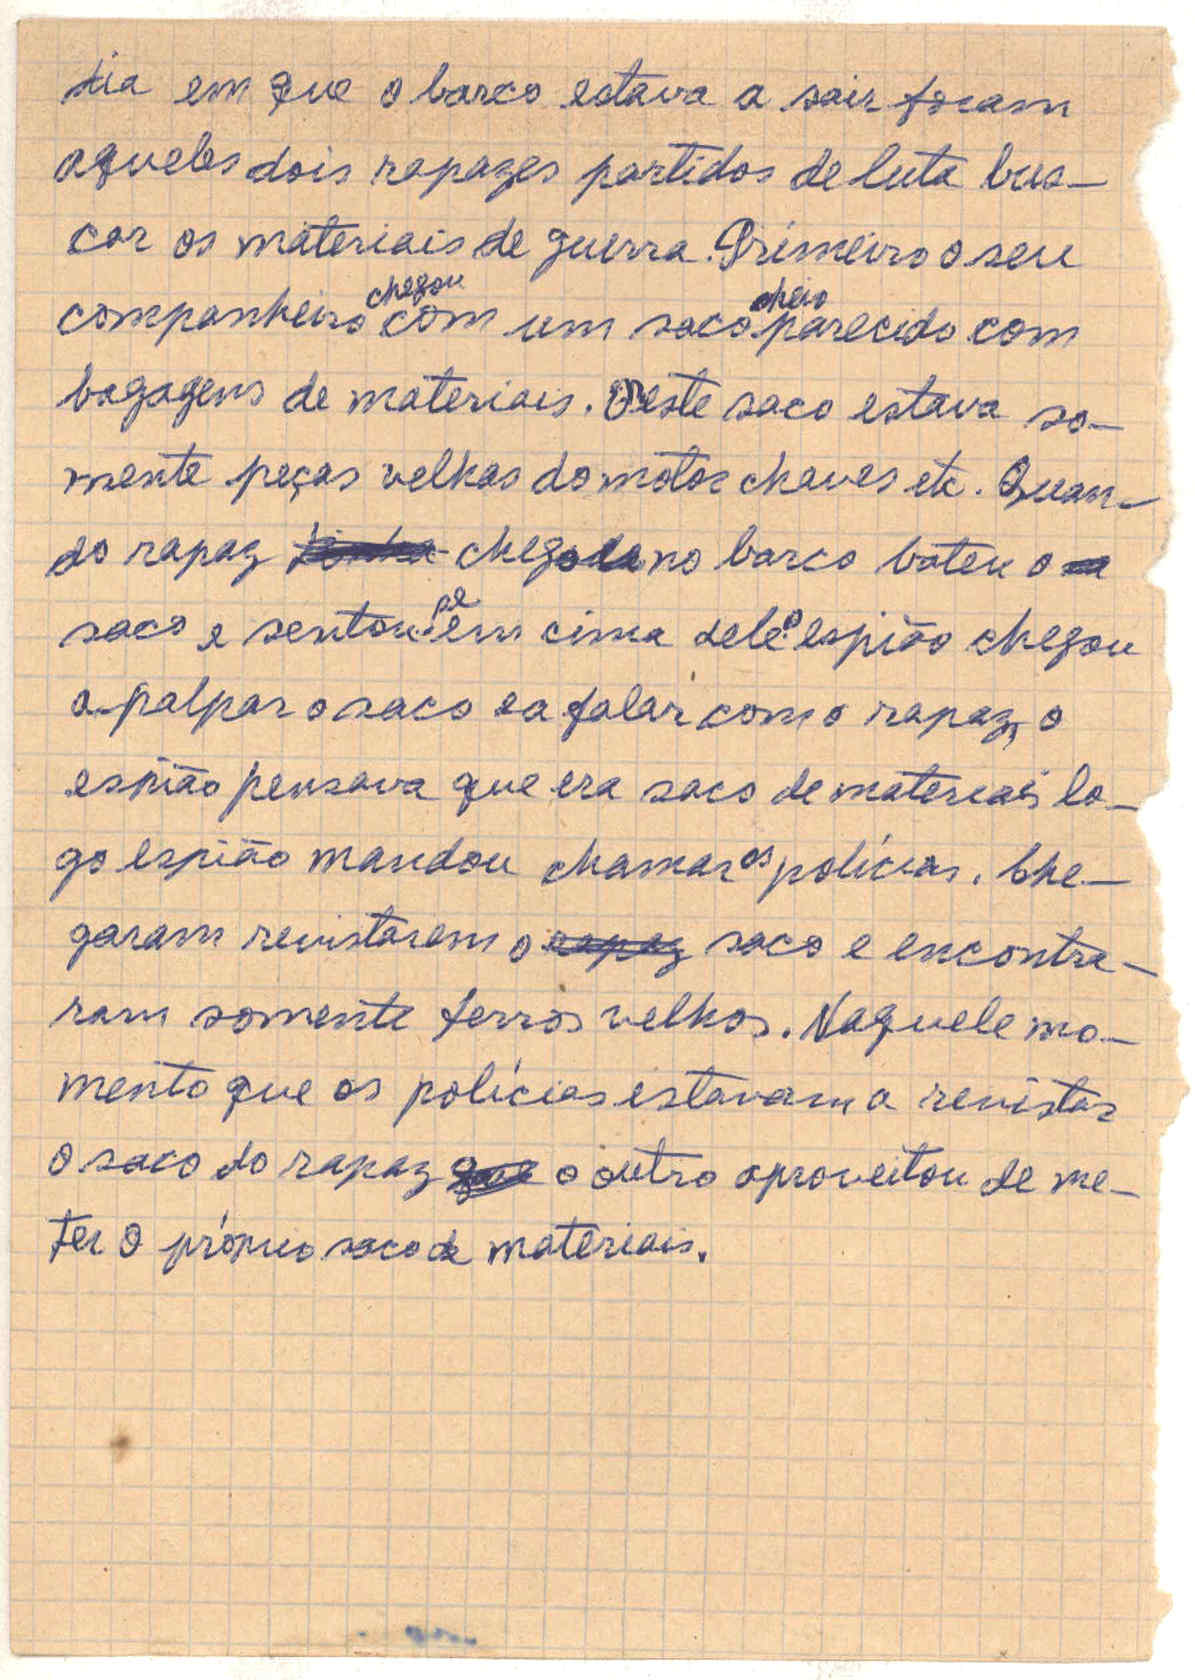 dia em que o barco estava a sair foram
aqueles dois rapazes partidos de luta bus-
car os materiais de guerra. Primeiro o seu
companheiro chegou com um saco cheio parecido com
bagagens de materiais. Neste saco estava so-
mente peças velhas do motor chaves etc. Quan-
do rapaz chegou no barco bateu o
saco e sentou-se em cima dele o espião chegou
a palpar o saco e a falar com o rapaz, o
espião pensava que era saco de materiais lo-
go espião mandou chamar os polícias. Che-
garam revistarem o rapaz saco e encontra-
ram somente ferros velhos. Naquele mo-
mento que os polícias estavam a revistar
o saco do rapaz que o outro aproveitou de me-
ter o próprio saco de materiais.